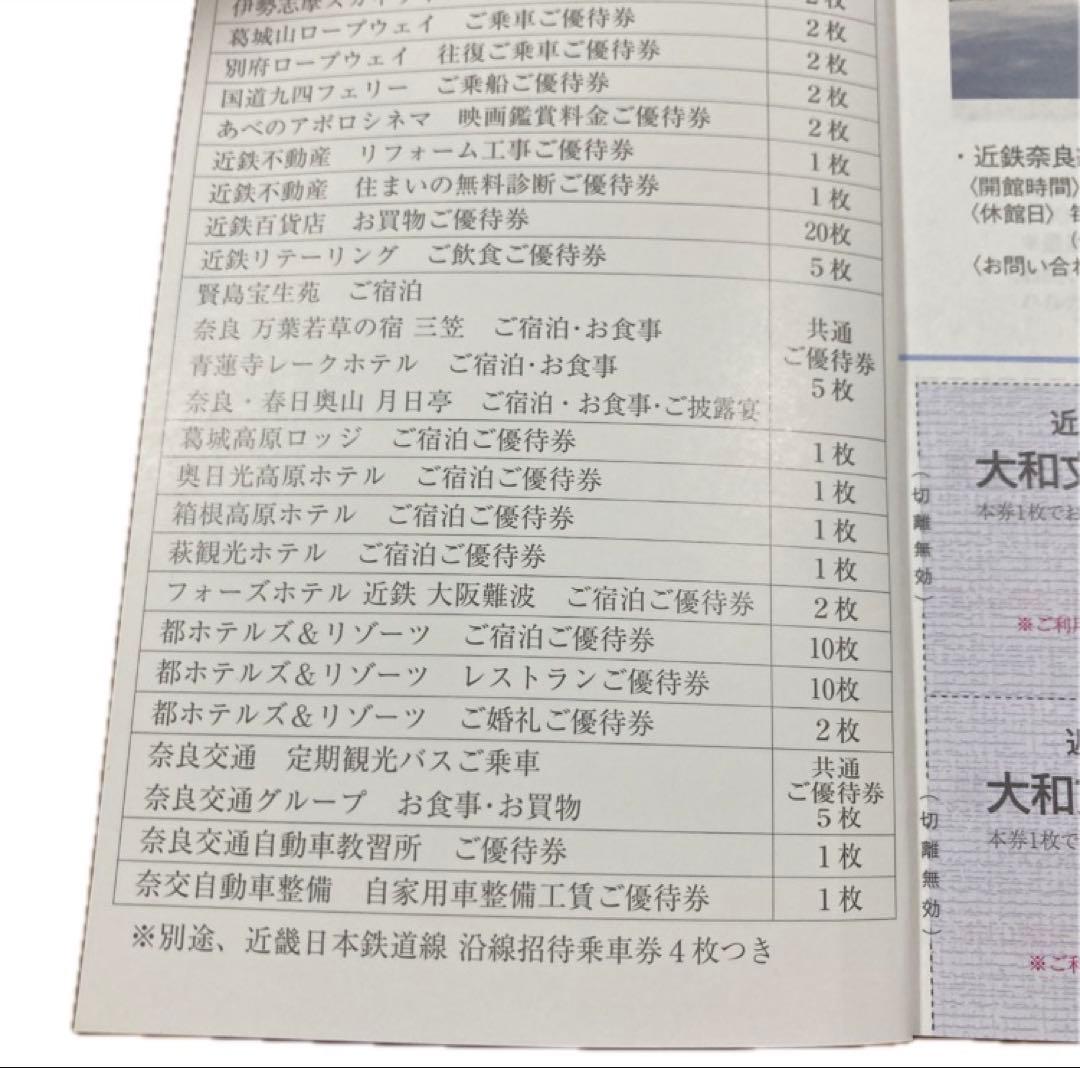 伊勢志摩スカイ
2枚
葛城山ロープウェイ　ご乗車ご優待券　2枚
別府ロープウェイ　往復ご乗車ご優待券　2枚
国道九四フェリー　ご乗船ご優待券　2枚
あべのアポロシネマ　映画鑑賞料金ご優待券　2枚
近鉄不動産　リフォーム工事ご優待券　1枚
近鉄不動産　住まいの無料診断ご優待券　1枚
近鉄百貨店　お買物ご優待券　20枚
近鉄リテーリング　ご飲食ご優待券　5枚
賢島宝生苑　ご宿泊
奈良 万葉若草の宿 三笠　ご宿泊・お食事
青蓮寺レークホテル　ご宿泊・お食事
奈良・春日奥山 月日亭　ご宿泊・お食事・ご披露宴
共通
ご優待券
5枚
葛城高原ロッジ　ご宿泊ご優待券　1枚
奥日光高原ホテル　ご宿泊ご優待券　1枚
箱根高原ホテル　ご宿泊ご優待券　1枚
萩観光ホテル　ご宿泊ご優待券　1枚
フォーズホテル 近鉄 大阪難波　ご宿泊ご優待券　2枚
都ホテルズ＆リゾーツ　ご宿泊ご優待券　10枚
都ホテルズ＆リゾーツ　レストランご優待券　10枚
都ホテルズ＆リゾーツ　ご婚礼ご優待券　2枚
奈良交通　定期観光バスご乗車
奈良交通グループ　お食事・お買物
共通
ご優待券
5枚
奈良交通自動車教習所　ご優待券　1枚
奈交自動車整備　自家用車整備工賃ご優待券　1枚
※別途、近畿日本鉄道線 沿線招待乗車券4枚つき
・近鉄奈良
〈開館時間〉
〈休館日〉
〈お問い合わ
（切離無効）
近
大和文
本券1枚でお
※ご利用
（切離無効）
大和
本券1枚で
※ご利